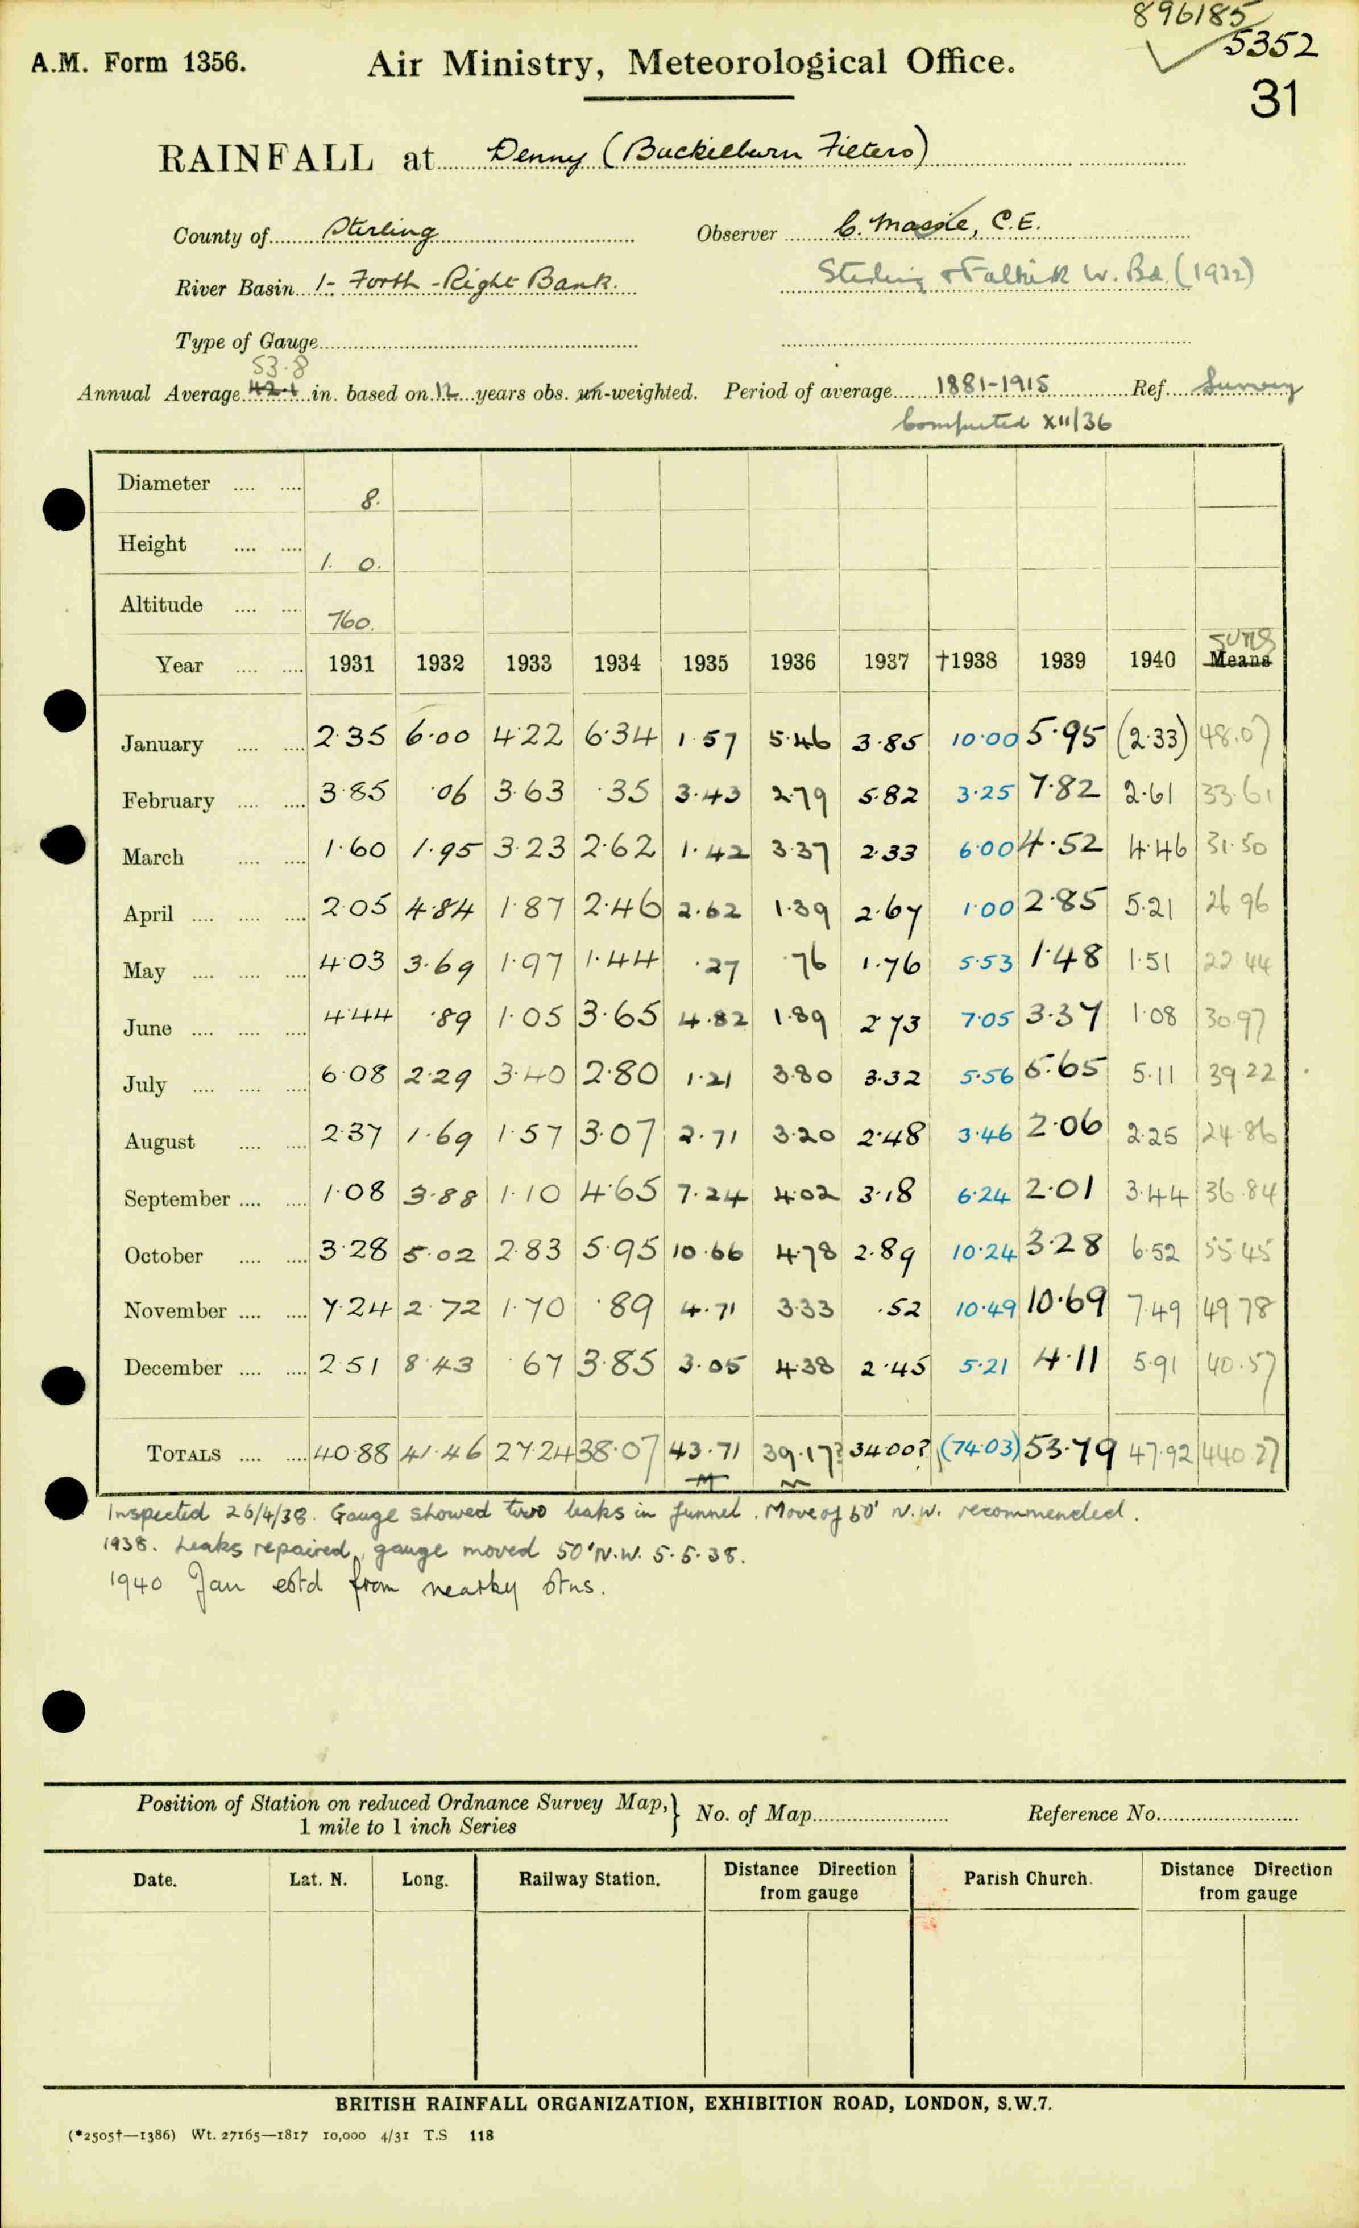 896185
5352
31
A.M. Form 1356. Air Ministry, Meteorological Office.
RAINFALL at Denny (Buckieburn Filters)
County of Stirling Observer C. Massie, C.E.
River Basin 1- Forth - Right Bank. Stirling & Falkirk W. Bd. (1932)
Type of Gauge
53.8
Annual Average 42.1 in. based on 12 years obs. un-weighted. Period of average 1881-1915 Ref. Survey
Computed XII/36
Diameter 8.
Height 1. 0.
Altitude 760.
Sums
Year 1931 1932 1933 1934 1935 1936 1937 †1938 1939 1940 Means
January 2.35 6.00 4.22 6.34 1.57 5.46 3.85 10.00 5.95 (2.33) 48.07
February 3.85 .06 3.63 .35 3.43 2.79 5.82 3.25 7.82 2.61 33.61
March 1.60 1.95 3.23 2.62 1.42 3.37 2.33 6.00 4.52 4.46 31.50
April 2.05 4.84 1.87 2.46 2.62 1.39 2.67 1.00 2.85 5.21 26.96
May 4.03 3.69 1.97 1.44 .27 .76 1.76 5.53 1.48 1.51 22.44
June 4.44 .89 1.05 3.65 4.82 1.89 2.73 7.05 3.37 1.08 30.97
July 6.08 2.29 3.40 2.80 1.21 3.80 3.32 5.56 5.65 5.11 39.22
August 2.37 1.69 1.57 3.07 2.71 3.20 2.48 3.46 2.06 2.25 24.86
September 1.08 3.88 1.10 4.65 7.24 4.02 3.18 6.24 2.01 3.44 36.84
October 3.28 5.02 2.83 5.95 10.66 4.78 2.89 10.24 3.28 6.52 55.45
November 7.24 2.72 1.70 .89 4.71 3.33 .52 10.49 10.69 7.49 49.78
December 2.51 8.43 .67 3.85 3.05 4.38 2.45 5.21 4.11 5.91 40.57
TOTALS 40.88 41.46 27.24 38.07 43.71 39.17? 34.00? (74.03) 53.79 47.92 440.27
Inspected 26/4/38. Gauge showed two leaks in funnel. Move of 50' N.W. recommended.
1938. Leaks repaired, gauge moved 50' N.W. 5.5.38.
1940 Jan estd from nearby stns.
Position of Station on reduced Ordnance Survey Map, 1 mile to 1 inch Series } No. of Map Reference No.
Date. Lat. N. Long. Railway Station. Distance Direction from gauge Parish Church. Distance Direction from gauge
BRITISH RAINFALL ORGANIZATION, EXHIBITION ROAD, LONDON, S.W.7.
(*2505†—1386) Wt. 27165—1817 10,000 4/31 T.S 118